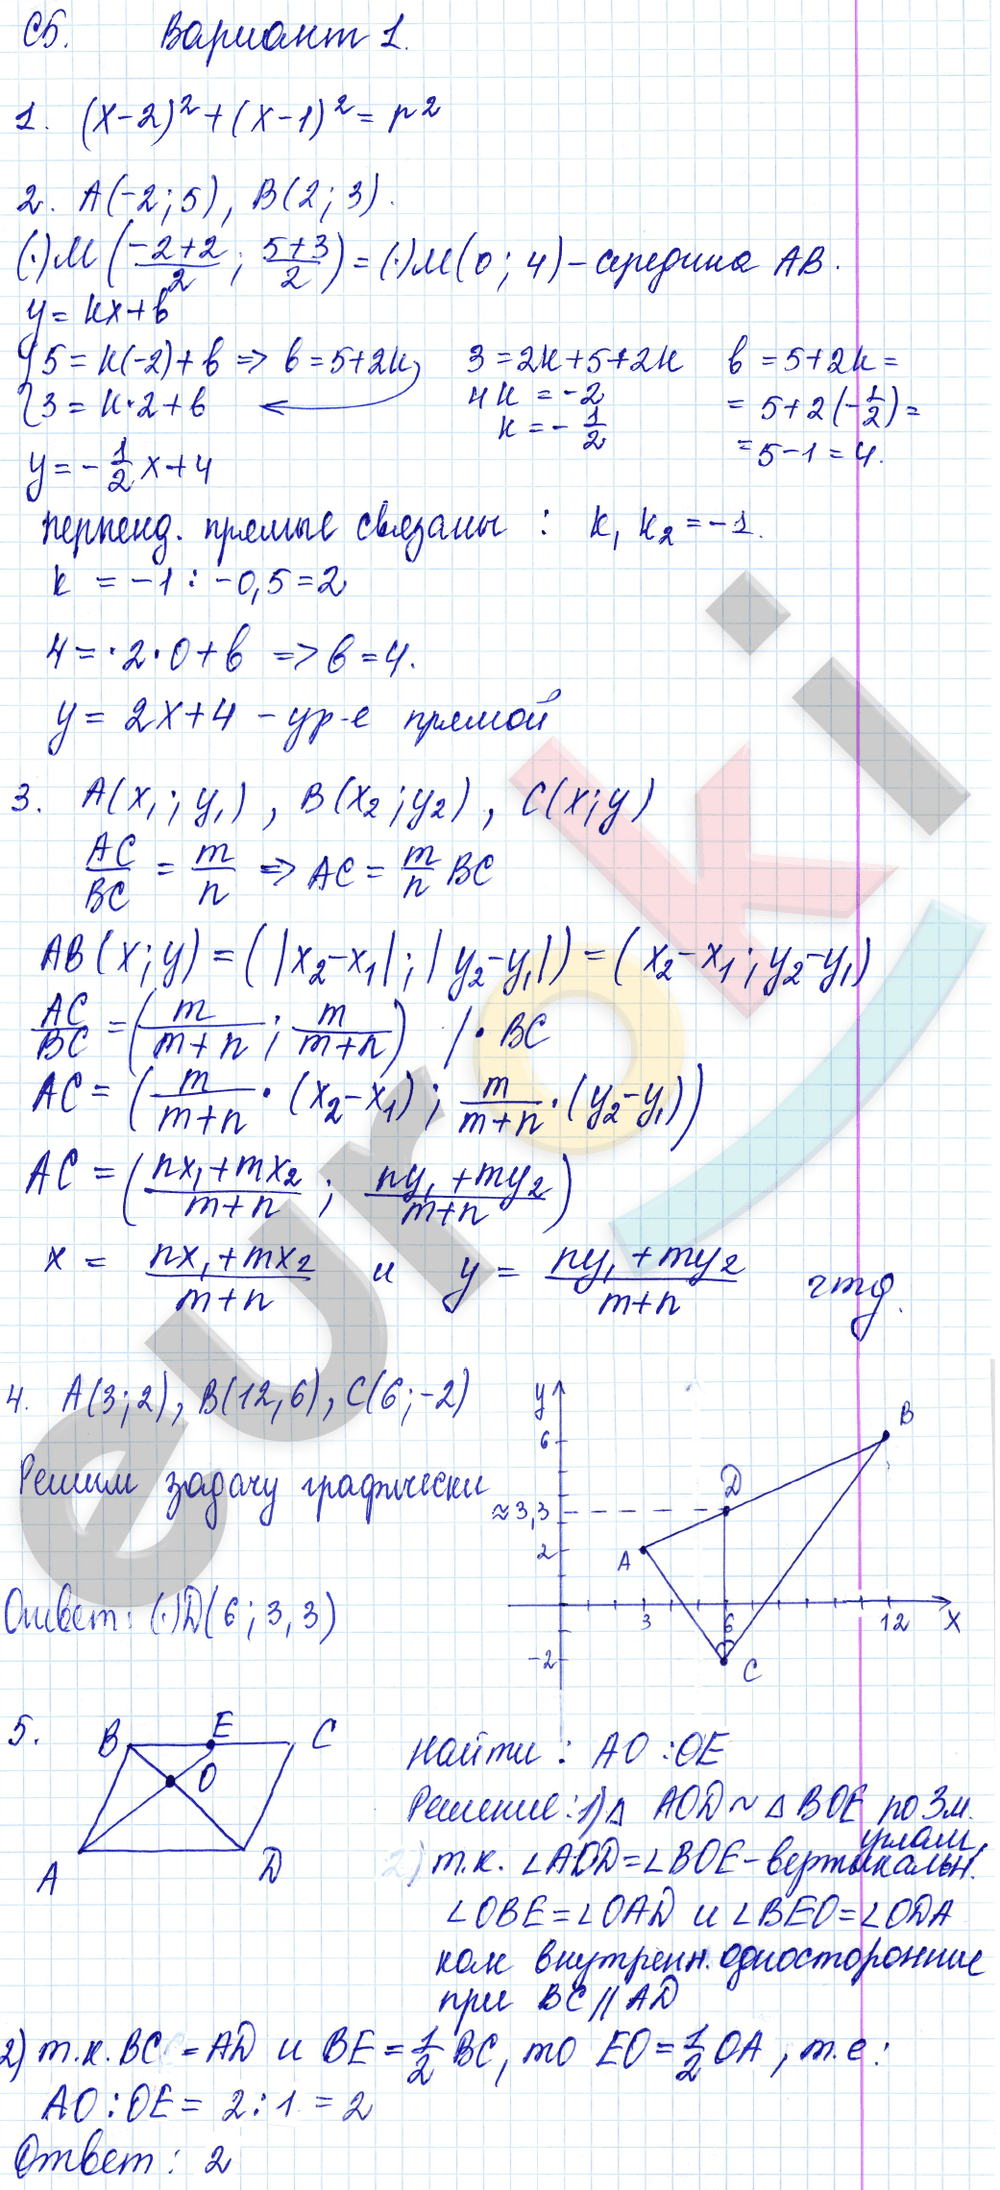 С5. Вариант 1.
1. (x-2)²+(x-1)²=r²
2. A(-2;5), B(2;3).
(·)M((-2+2)/2; (5+3)/2)=(·)M(0;4)-середина AB.
y=kx+b
{5=k(-2)+b => b=5+2k 3=2k+5+2k b=5+2k=
{3=k·2+b 4k=-2 =5+2(-1/2)=
k=-1/2 =5-1=4.
y=-1/2x+4
перпенд. прямые связаны: k₁k₂=-1.
k=-1:-0,5=2
4=·2·0+b => b=4.
y=2x+4-ур-е прямой
3. A(x₁;y₁), B(x₂;y₂), C(x;y)
AC/BC=m/n => AC=m/n BC
AB(x;y)=(|x₂-x₁|;|y₂-y₁|)=(x₂-x₁;y₂-y₁)
AC/BC=(m/(m+n); m/(m+n)) /·BC
AC=(m/(m+n)·(x₂-x₁); m/(m+n)·(y₂-y₁))
AC=((nx₁+mx₂)/(m+n); (ny₁+my₂)/(m+n))
x=(nx₁+mx₂)/(m+n) и y=(ny₁+my₂)/(m+n) чтд.
4. A(3;2), B(12,6), C(6;-2)
Решим задачу графически
Ответ: (·)D(6;3,3)
y
6
≈3,3
2
-2
3 6 12 x
A
B
C
D
5.
B E C
O
A D
Найти: AO:OE
Решение: 1)△AOD~△BOE по 3м.
углам
2) т.к. ∠AOD=∠BOE-вертикальн.
∠OBE=∠OAD и ∠BEO=∠ODA
как внутренн. односторонние
при BC||AD
2) т.к. BC=AD и BE=1/2BC, то EO=1/2OA, т.е:
AO:OE=2:1=2
Ответ: 2
euroki